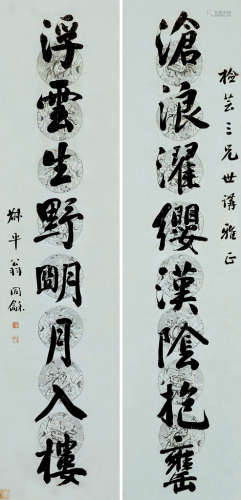 檢芸三兄世講雅正
滄浪濯纓漢陰抱甕
浮雲生野明月入樓
叔平翁同龢